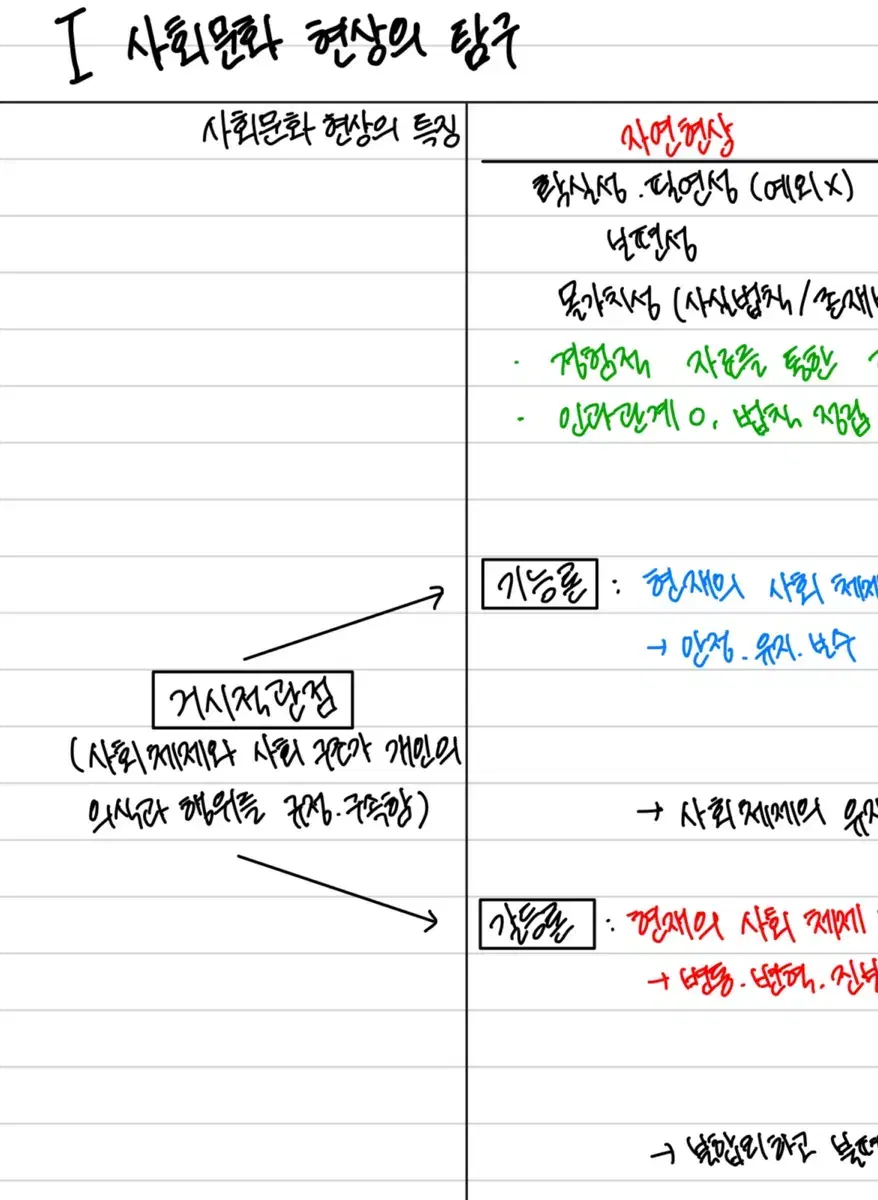 I 사회문화 현상의 탐구
사회문화 현상의 특징
자연현상
확실성.필연성 (예외X)
보편성
몰가치성 (사실법칙/존재
· 경험적 자료를 통한
· 인과관계 O, 법칙 정립
기능론 : 현재의 사회 체제
→ 안정.유지.보수
거시적관점
(사회체제와 사회 구조가 개인의
의식과 행위를 규정.구속함)
→ 사회체제의 유지
갈등론 : 현재의 사회 체제
→ 변동.변혁.진보
→ 불합리하고 불평